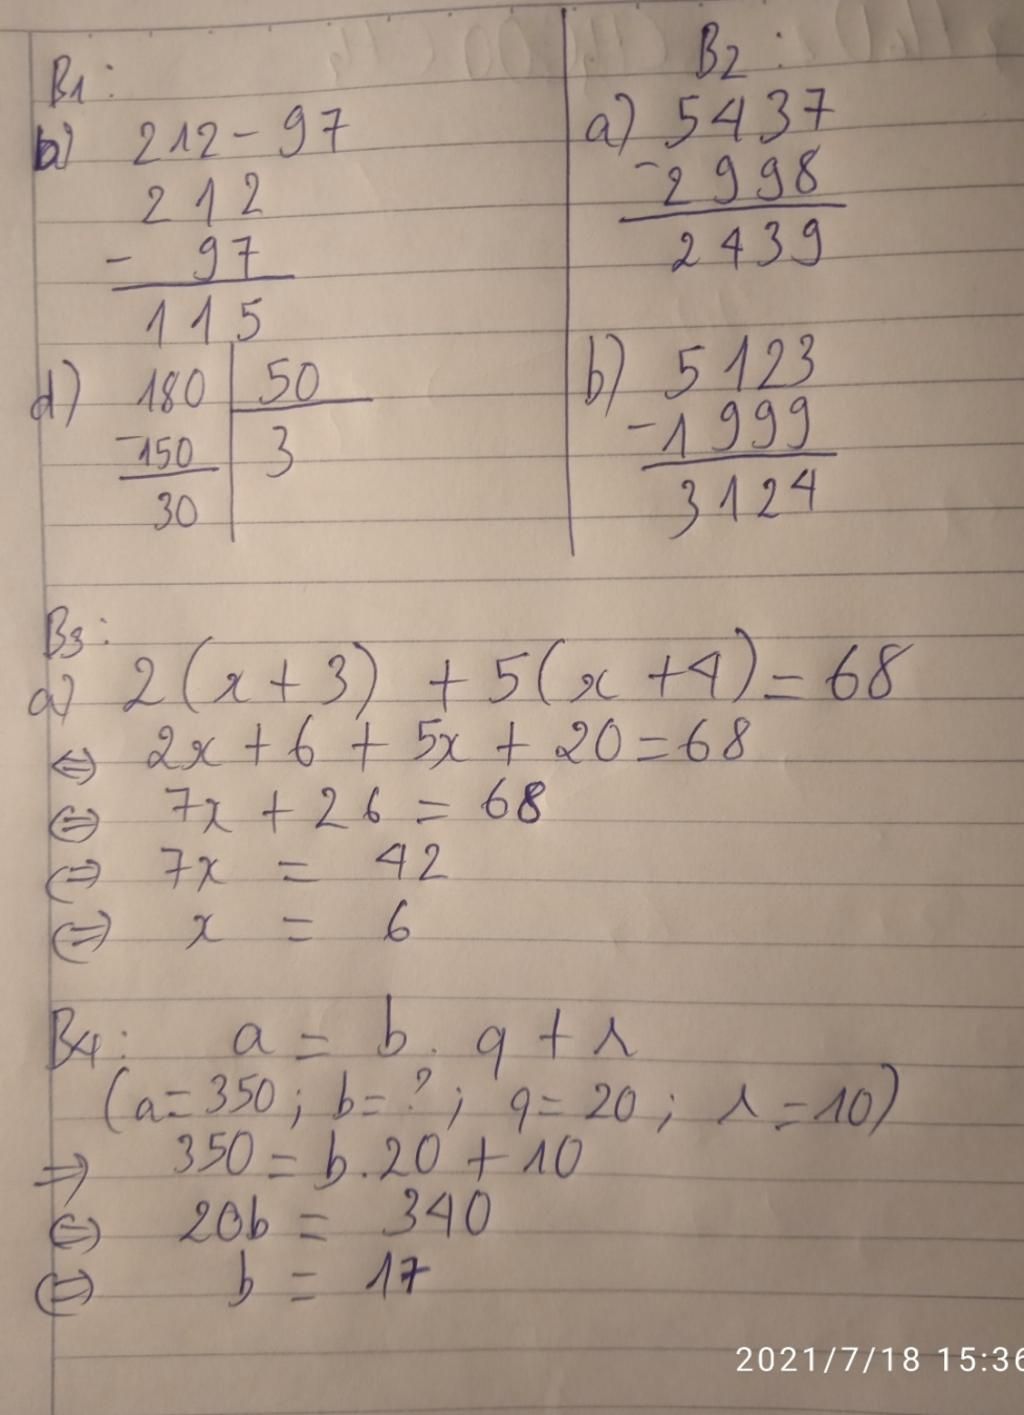 B1:
b) 212 - 97
212
- 97
115
d) 180 50
-150 3
30
B2:
a) 5437
- 2998
2439
b) 5123
- 1999
3124
B3:
a) 2(x + 3) + 5(x + 4) = 68
⇔ 2x + 6 + 5x + 20 = 68
⇔ 7x + 26 = 68
⇔ 7x = 42
⇔ x = 6
B4: a = b . q + r
(a = 350 ; b = ? ; q = 20 ; r = 10)
⇒ 350 = b . 20 + 10
⇔ 20b = 340
⇔ b = 17
2021/7/18 15:36